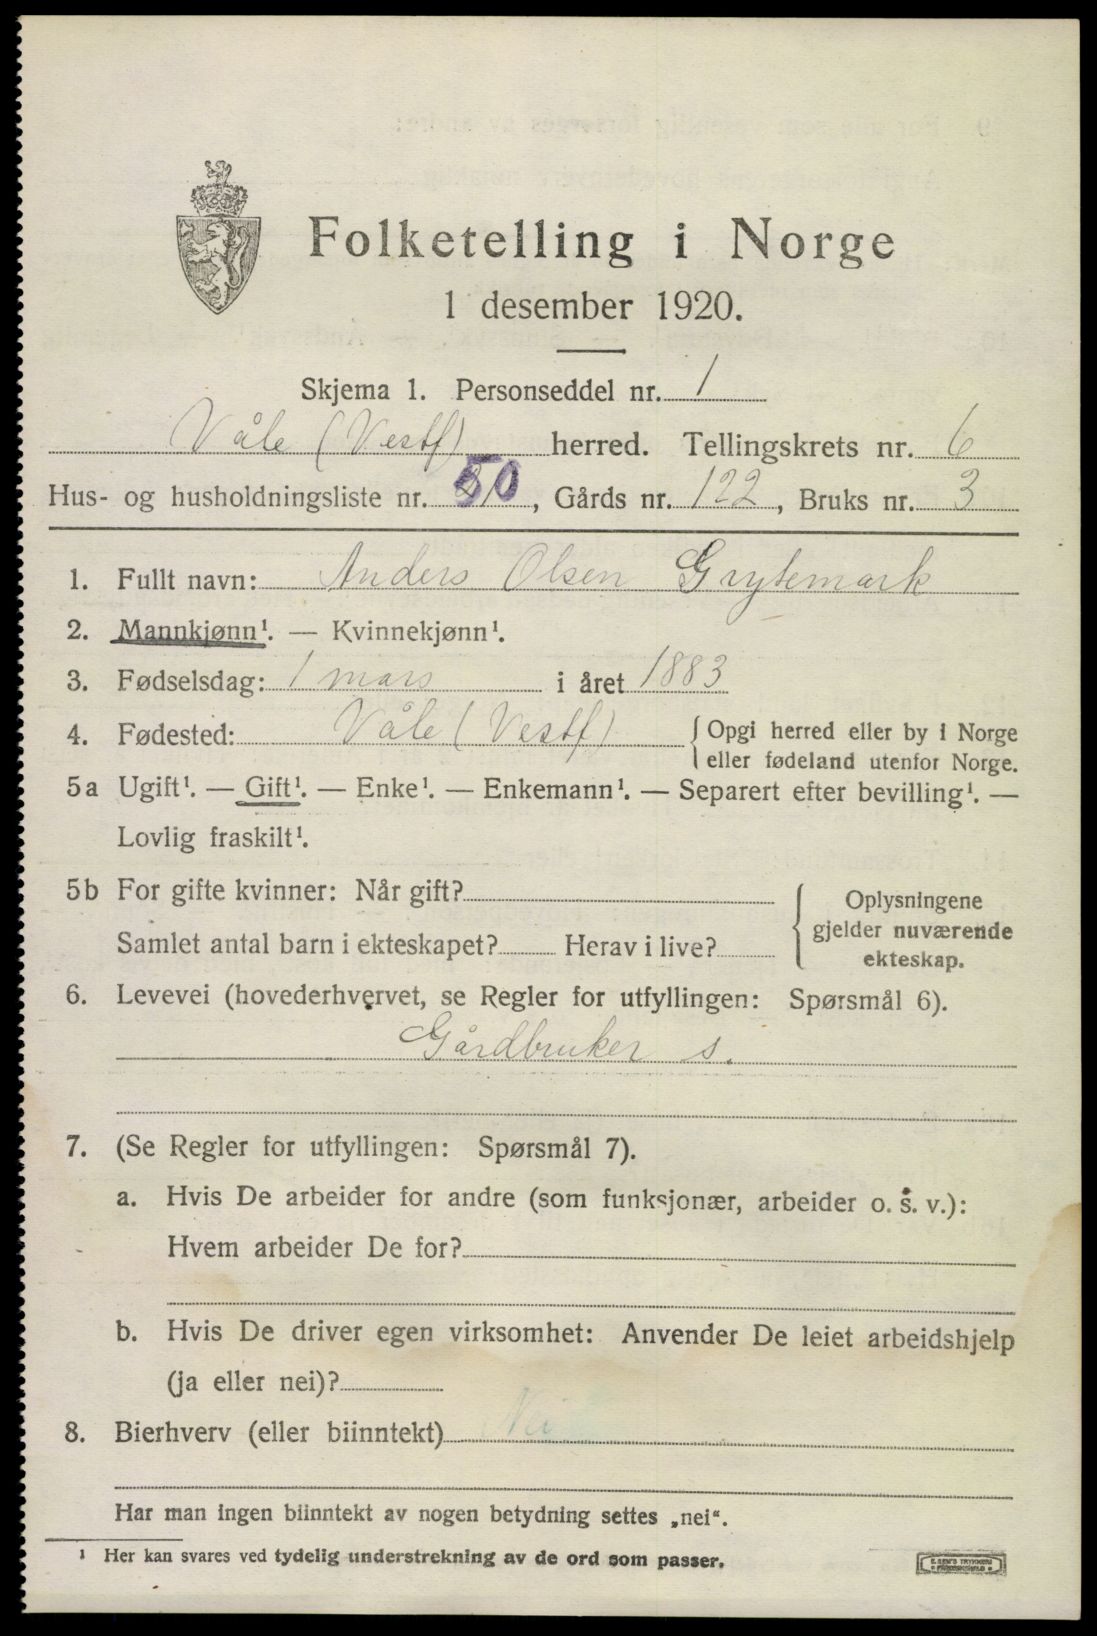 Folketelling i Norge
1 desember 1920.
Skjema 1. Personseddel nr. 1
Våle (Vestf) herred. Tellingskrets nr. 6
Hus- og husholdningsliste nr. 50, Gårds nr. 122, Bruks nr. 3
1. Fullt navn: Anders Olsen Grytemark
2. Mannkjønn¹. — Kvinnekjønn¹.
3. Fødselsdag: 1 mars i året 1883
4. Fødested: Våle (Vestf) { Opgi herred eller by i Norge
eller fødeland utenfor Norge.
5a Ugift¹. — Gift¹. — Enke¹. — Enkemann¹. — Separert efter bevilling¹. —
Lovlig fraskilt¹.
5b For gifte kvinner: Når gift?
Samlet antal barn i ekteskapet? Herav i live?
{ Oplysningene
gjelder nuværende
ekteskap.
6. Levevei (hovederhvervet, se Regler for utfyllingen: Spørsmål 6).
Gårdbruker s.
7. (Se Regler for utfyllingen: Spørsmål 7).
a. Hvis De arbeider for andre (som funksjonær, arbeider o. s. v.):
Hvem arbeider De for?
b. Hvis De driver egen virksomhet: Anvender De leiet arbeidshjelp
(ja eller nei)?
8. Bierhverv (eller biinntekt) Nei
Har man ingen biinntekt av nogen betydning settes „nei“.
¹ Her kan svares ved tydelig understrekning av de ord som passer.